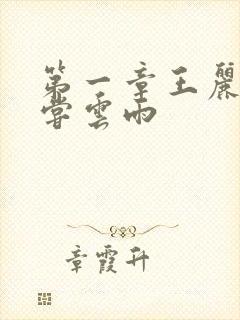 第一章王麗
嘗雲雨
章霞升